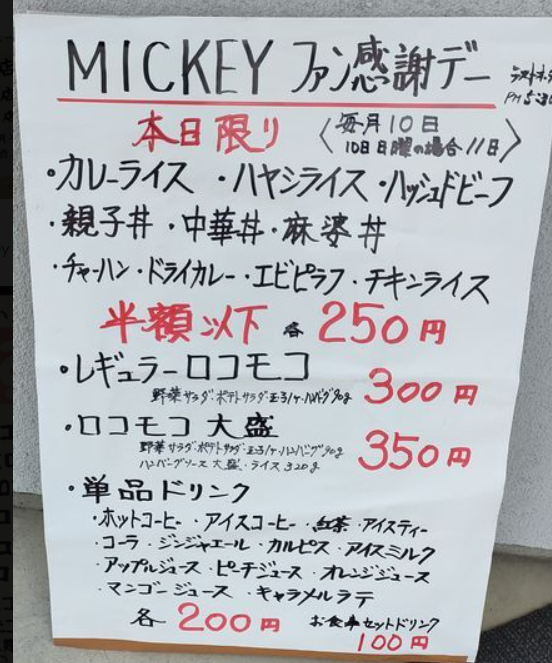 MICKEY ファン感謝デー
ラストオーダー
PM 5:30
本日限り
〈毎月10日
10日日曜の場合11日〉
・カレーライス ・ハヤシライス ・ハッシュドビーフ
・親子丼 ・中華丼 ・麻婆丼
・チャーハン ・ドライカレー ・エビピラフ ・チキンライス
半額以下 各 250円
・レギュラーロコモコ
野菜サラダ・ポテトサラダ・玉子1ケ・ハンバーグ90g
300円
・ロコモコ 大盛
野菜サラダ・ポテトサラダ・玉子1ケ・ハンバーグ90g
ハンバーグソース大盛・ライス320g
350円
・単品ドリンク
・ホットコーヒー ・アイスコーヒー ・紅茶 ・アイスティー
・コーラ ・ジンジャエール ・カルピス ・アイスミルク
・アップルジュース ・ピーチジュース ・オレンジジュース
・マンゴージュース ・キャラメルラテ
各 200円
お食事セットドリンク
100円